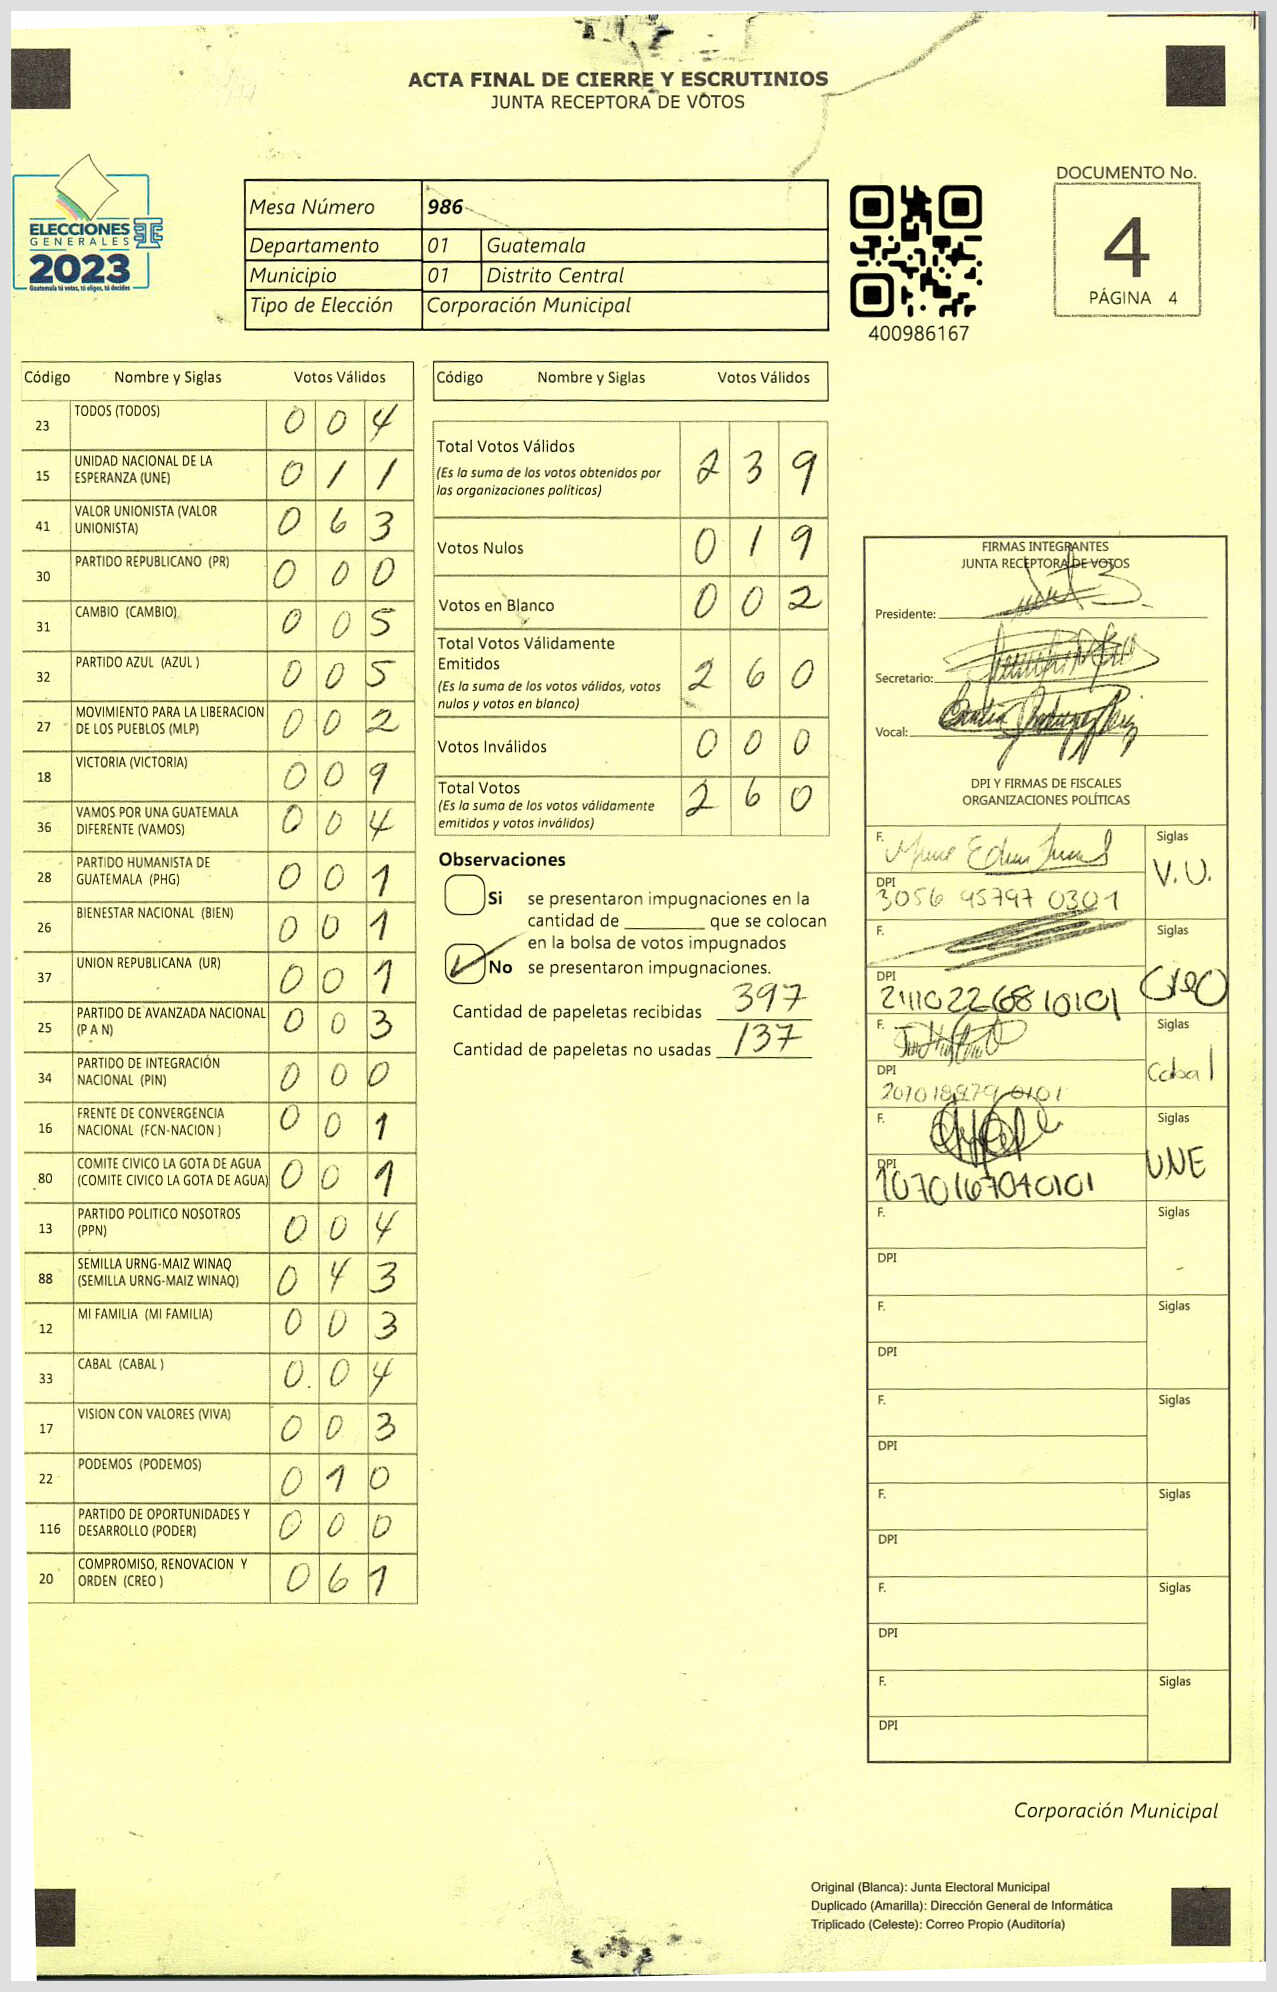 ACTA FINAL DE CIERRE Y ESCRUTINIOS
JUNTA RECEPTORA DE VOTOS
ELECCIONES
GENERALES
2023
Guatemala tú votas, tú eliges, tú decides
Mesa Número 986
Departamento 01 Guatemala
Municipio 01 Distrito Central
Tipo de Elección Corporación Municipal
400986167
DOCUMENTO No.
4
PÁGINA 4
Código Nombre y Siglas Votos Válidos
23 TODOS (TODOS) 0 0 4
15 UNIDAD NACIONAL DE LA ESPERANZA (UNE) 0 1 1
41 VALOR UNIONISTA (VALOR UNIONISTA) 0 6 3
30 PARTIDO REPUBLICANO (PR) 0 0 0
31 CAMBIO (CAMBIO) 0 0 5
32 PARTIDO AZUL (AZUL ) 0 0 5
27 MOVIMIENTO PARA LA LIBERACION DE LOS PUEBLOS (MLP) 0 0 2
18 VICTORIA (VICTORIA) 0 0 9
36 VAMOS POR UNA GUATEMALA DIFERENTE (VAMOS) 0 0 4
28 PARTIDO HUMANISTA DE GUATEMALA (PHG) 0 0 1
26 BIENESTAR NACIONAL (BIEN) 0 0 1
37 UNION REPUBLICANA (UR) 0 0 1
25 PARTIDO DE AVANZADA NACIONAL (P A N) 0 0 3
34 PARTIDO DE INTEGRACIÓN NACIONAL (PIN) 0 0 0
16 FRENTE DE CONVERGENCIA NACIONAL (FCN-NACION ) 0 0 1
80 COMITE CIVICO LA GOTA DE AGUA (COMITE CIVICO LA GOTA DE AGUA) 0 0 1
13 PARTIDO POLITICO NOSOTROS (PPN) 0 0 4
88 SEMILLA URNG-MAIZ WINAQ (SEMILLA URNG-MAIZ WINAQ) 0 4 3
12 MI FAMILIA (MI FAMILIA) 0 0 3
33 CABAL (CABAL ) 0 0 4
17 VISION CON VALORES (VIVA) 0 0 3
22 PODEMOS (PODEMOS) 0 1 0
116 PARTIDO DE OPORTUNIDADES Y DESARROLLO (PODER) 0 0 0
20 COMPROMISO, RENOVACION Y ORDEN (CREO ) 0 6 1
Código Nombre y Siglas Votos Válidos
Total Votos Válidos 2 3 9
(Es la suma de los votos obtenidos por
las organizaciones políticas)
Votos Nulos 0 1 9
Votos en Blanco 0 0 2
Total Votos Válidamente
Emitidos 2 6 0
(Es la suma de los votos válidos, votos
nulos y votos en blanco)
Votos Inválidos 0 0 0
Total Votos 2 6 0
(Es la suma de los votos válidamente
emitidos y votos inválidos)
Observaciones
Si se presentaron impugnaciones en la
cantidad de ________ que se colocan
en la bolsa de votos impugnados
No se presentaron impugnaciones.
Cantidad de papeletas recibidas 397
Cantidad de papeletas no usadas 137
FIRMAS INTEGRANTES
JUNTA RECEPTORA DE VOTOS
Presidente:
Secretario:
Vocal:
DPI Y FIRMAS DE FISCALES
ORGANIZACIONES POLÍTICAS
F. Siglas
V.U.
DPI
3056 95797 0301
F. Siglas
Creo
DPI
2111022680101
F. Siglas
Cabal
DPI
F. Siglas
UNE
DPI
1070167040101
F. Siglas
DPI
F. Siglas
DPI
F. Siglas
DPI
F. Siglas
DPI
F. Siglas
DPI
F. Siglas
DPI
Corporación Municipal
Original (Blanca): Junta Electoral Municipal
Duplicado (Amarilla): Dirección General de Informática
Triplicado (Celeste): Correo Propio (Auditoría)